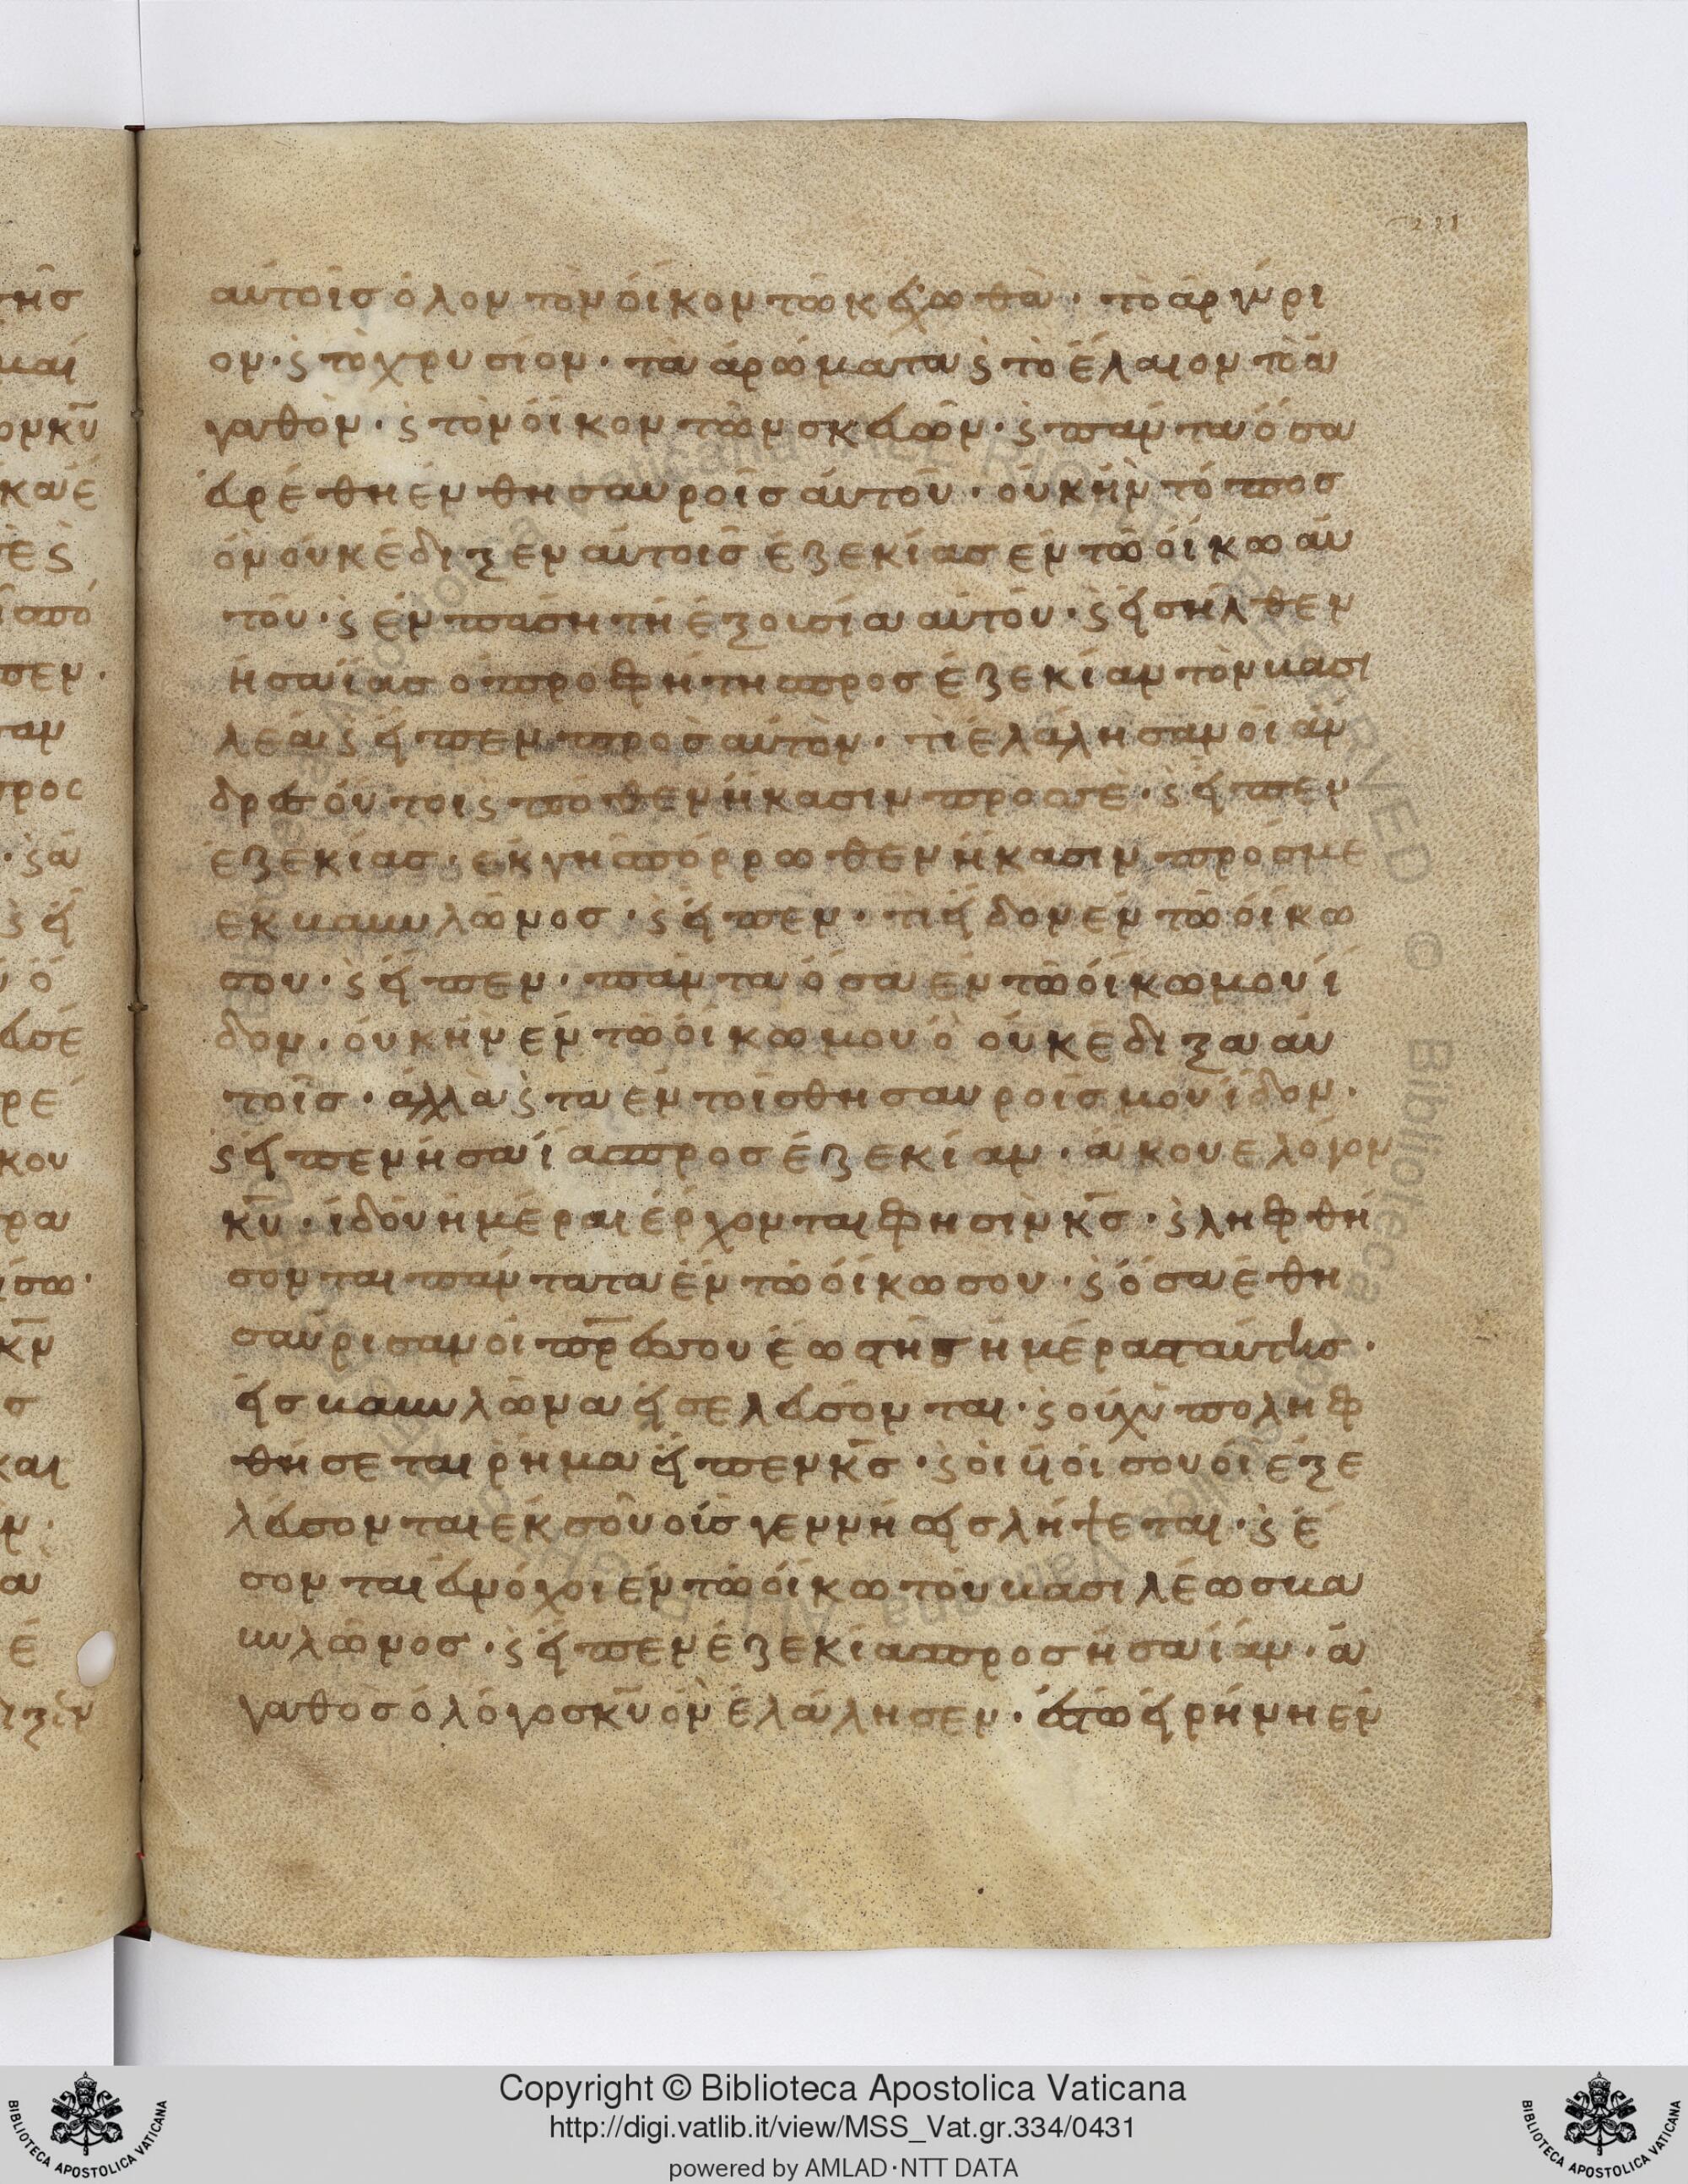 211
αὐτοῖς ὅλον τὸν οἶκον τῶ κεχωθὰ· τὸ ἀργύρι
ον· ϛ τὸ χρυσίον· τὰ ἀρώματα ϛ τὸ ἔλαιον τὸ ἀ
γαθὸν· ϛ τὸν οἶκον τῶν σκευῶν· ϛ πάντα ὅσα
εὑρέθη ἐν θησαυροῖς αὐτοῦ· οὐκ ἦν τόπος
ὃν οὐκ ἔδιξεν αὐτοῖς ἐζεκίας ἐν τῶ οἴκω αὐ
τοῦ· ϛ ἐν πάση τῆ ἐξουσία αὐτοῦ· ϛ εἰσῆλθεν
ἡσαΐας ὁ προφήτη προς ἐζεκίαν τὸν βασι
λέα ϛ εἶπεν προς αὐτὸν· τὶ ἐλάλησαν οἱ ἄν
δρες οὗτοι ϛ πόθεν ἥκασιν προσσὲ· ϛ εἶπεν
ἐζεκίας· ἐκ γῆ πόρρωθεν ἥκασιν πρόσμε
ἐκ βαβυλῶνος· ϛ εἶπεν· τί εἶδον ἐν τῶ οἴκω
σου· ϛ εἶπεν· πάντα ὅσα ἐν τῶ οἴκω μου ἴ
δον· οὐκ ἦν ἐν τῶ οἴκω μου ὃ οὐκ ἔδιξα αὐ
τοῖς· ἀλλὰ ϛ τὰ ἐν τοῖς θησαυροῖς μου ἴδον·
ϛ εἶπεν ἡσαΐας προς ἐζεκίαν· ἄκουε λόγον
κ̅υ̅· ἰδοὺ ἡμέραι ἔρχονται φησὶν κ̅ς̅· ϛ ληφθή
σονται πάντα τὰ ἐν τῶ οἴκω σου· ϛ ὅσα ἐθη
σαύρισαν οἱ π̅ρ̅ες σου ἕως τῆς ἡμέρας ταύτης·
εἰς βαβυλῶνα εἰσελεύσονται· ϛ οὐχ ὑποληφ
θήσεται ῥῆμα εἶπεν κ̅ς̅· ϛ οἱ υἱοί σου οἳ ἐξε
λεύσονται ἐκ σοῦ οἷς γεννήσεις λήψεται· ϛ ἔ
σονται εὐνόχοι ἐν τῶ οἴκω τοῦ βασιλέως βα
βυλῶνος· ϛ εἶπεν ἐζεκίας προς ἡσαΐαν· ἀ
γαθὸς ὁ λόγος κ̅υ̅ ὃν ἐλάλησεν· ἔστω εἰρήνη ἐν
Copyright © Biblioteca Apostolica Vaticana
http://digi.vatlib.it/view/MSS_Vat.gr.334/0431
powered by AMLAD·NTT DATA
BIBLIOTECA APOSTOLICA VATICANA
BIBLIOTECA APOSTOLICA VATICANA